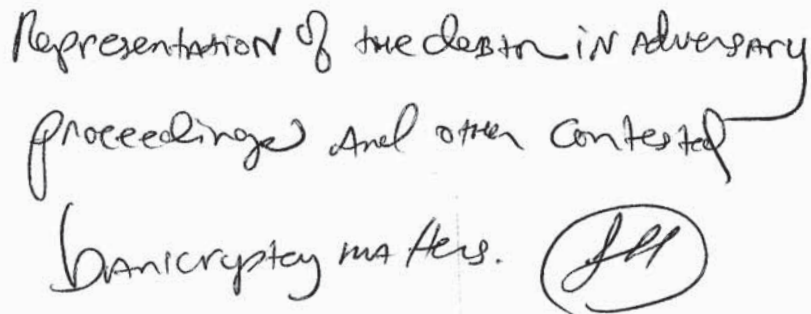 Representation of the debtor in adversary
proceedings and other contested
bankruptcy matters.